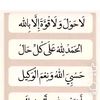 لَا حَوْلَ وَلَا قُوَّةَ إِلَّا بِاللّٰه
الْحَمْدُ لِلّٰهِ عَلَى كُلِّ حَالٍ
حَسْبِيَ اللّٰهُ وَنِعْمَ الْوَكِيلُ